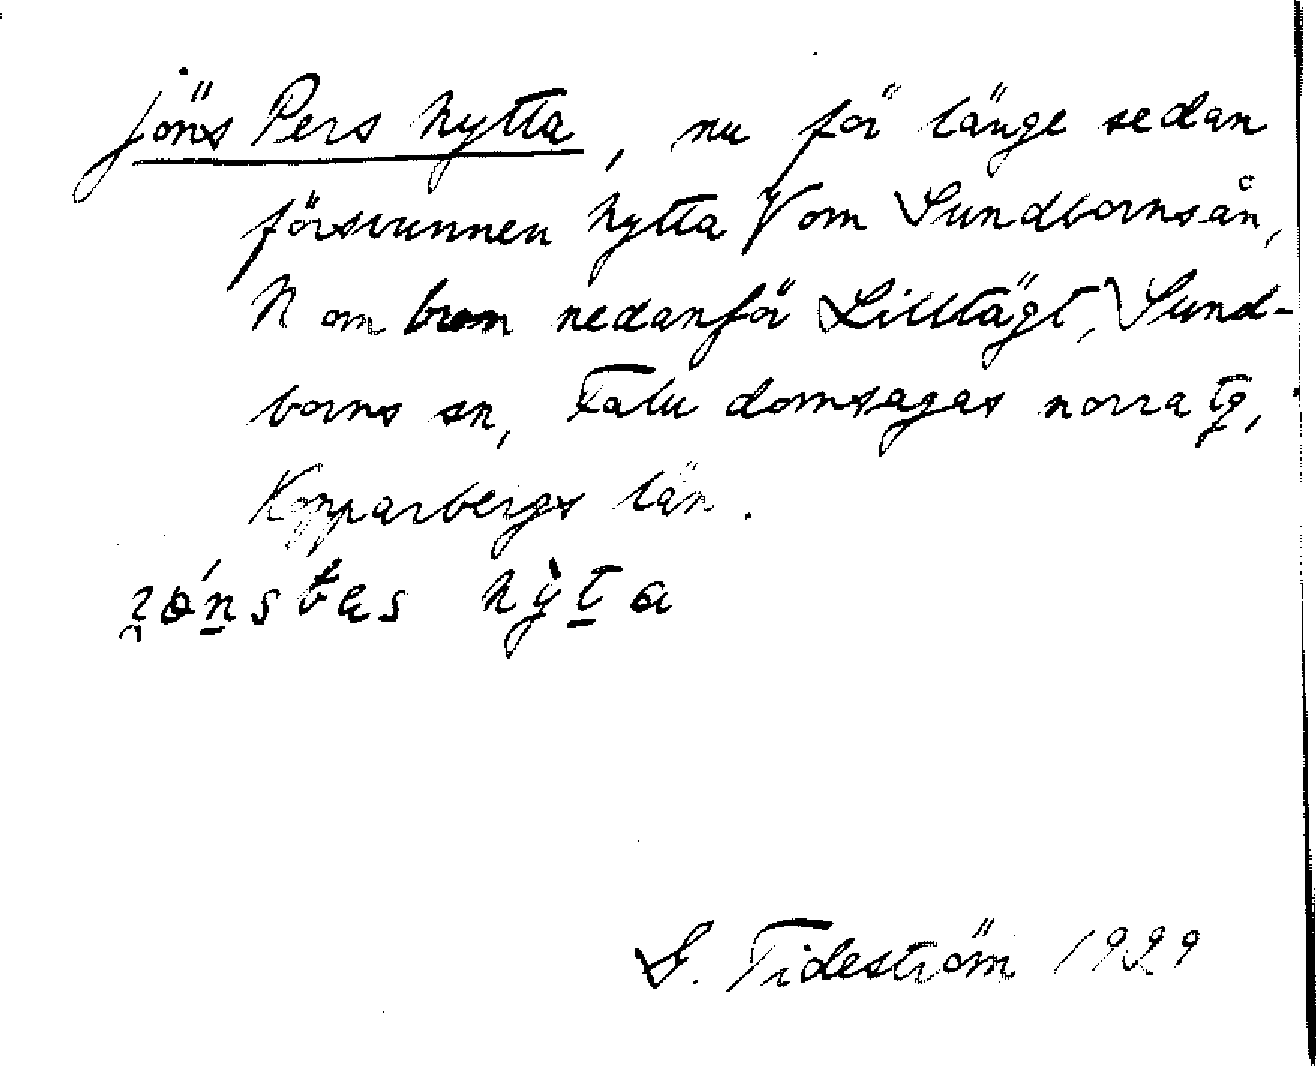 Jöns Pers hytta, nu för länge sedan
försvunnen hytta V om Sundbornsån,
N om bron nedanför Lilltägt, Sund-
borns sn, Falu domsagas norra tg,
Kopparbergs län.
hỳta
G. Tideström 1929